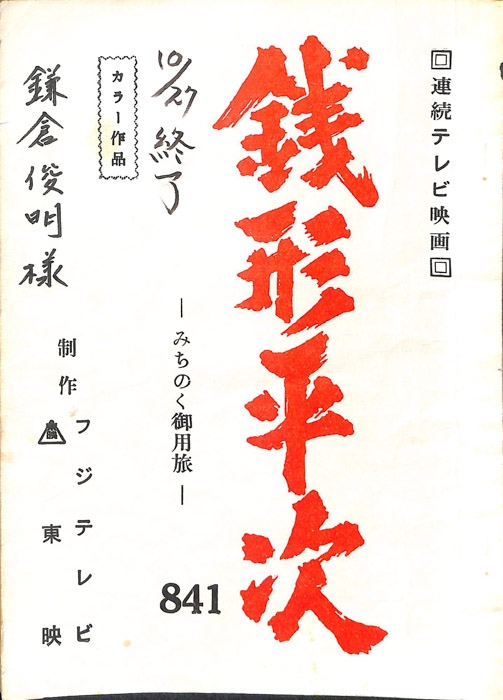 連続テレビ映画
銭形平次
―みちのく御用旅―
841
10/27 終了
カラー作品
鎌倉俊明様
制作
フジテレビ
東映